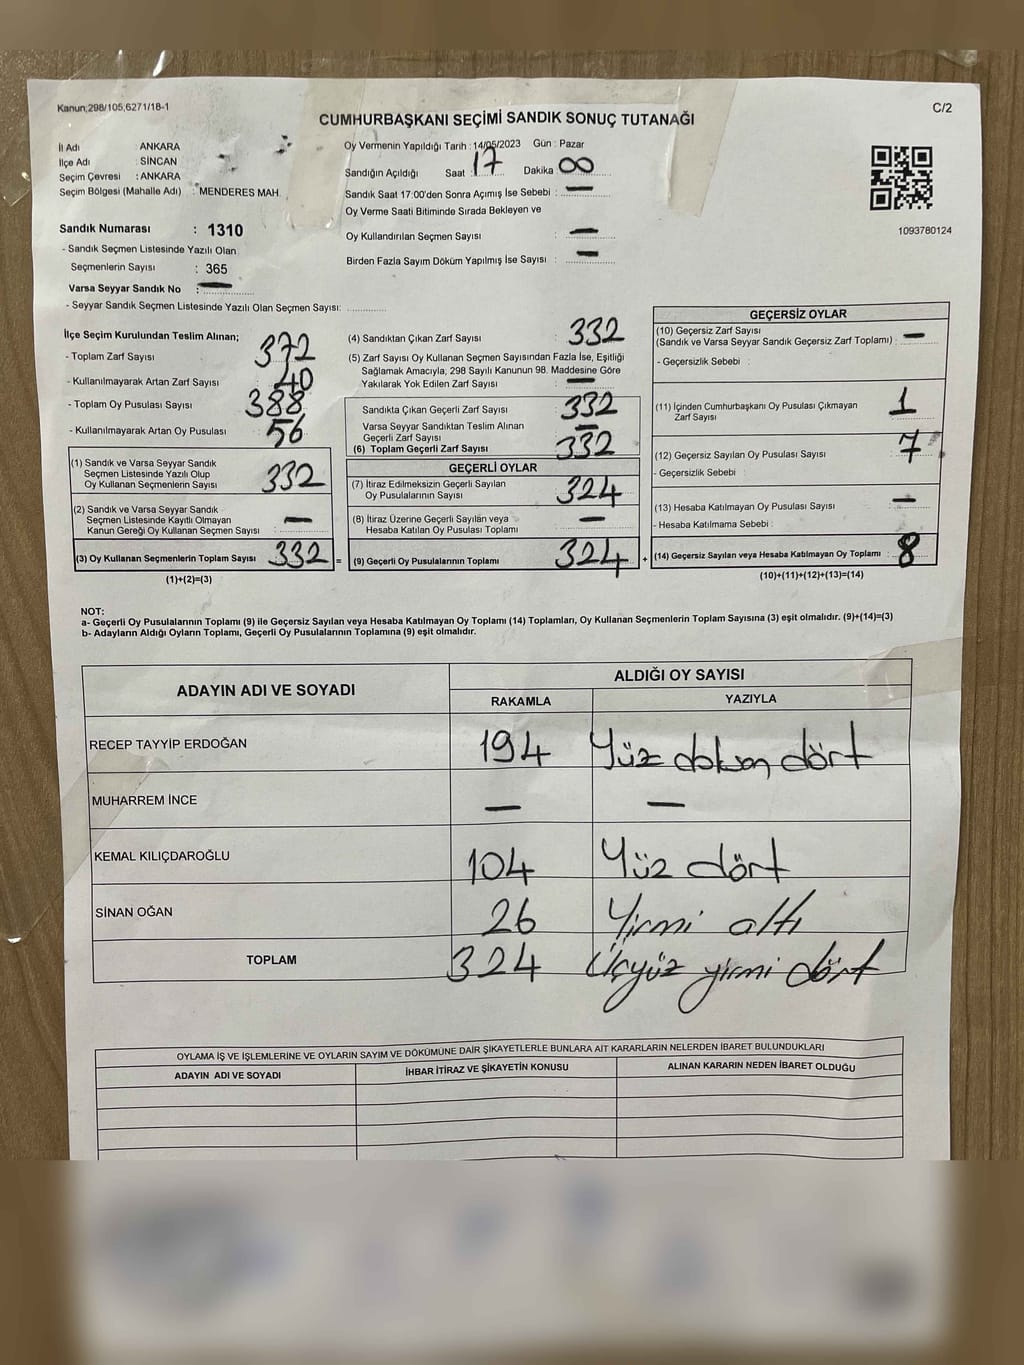 Kanun;298/105,6271/18-1
C/2
CUMHURBAŞKANI SEÇİMİ SANDIK SONUÇ TUTANAĞI
İl Adı : ANKARA
İlçe Adı : SİNCAN
Seçim Çevresi : ANKARA
Seçim Bölgesi (Mahalle Adı) : MENDERES MAH.
Sandık Numarası : 1310
- Sandık Seçmen Listesinde Yazılı Olan
Seçmenlerin Sayısı : 365
Varsa Seyyar Sandık No : —
- Seyyar Sandık Seçmen Listesinde Yazılı Olan Seçmen Sayısı: ............
Oy Vermenin Yapıldığı Tarih : 14/05/2023 Gün : Pazar
Sandığın Açıldığı Saat : 17 Dakika 00
Sandık Saat 17:00'den Sonra Açımış İse Sebebi : —
Oy Verme Saati Bitiminde Sırada Bekleyen ve
Oy Kullandırılan Seçmen Sayısı : —
Birden Fazla Sayım Döküm Yapılmış İse Sayısı : —
1093780124
İlçe Seçim Kurulundan Teslim Alınan;
- Toplam Zarf Sayısı 372
- Kullanılmayarak Artan Zarf Sayısı 40
- Toplam Oy Pusulası Sayısı 388
- Kullanılmayarak Artan Oy Pusulası 56
(1) Sandık ve Varsa Seyyar Sandık
Seçmen Listesinde Yazılı Olup
Oy Kullanan Seçmenlerin Sayısı 332
(2) Sandık ve Varsa Seyyar Sandık
Seçmen Listesinde Kayıtlı Olmayan
Kanun Gereği Oy Kullanan Seçmen Sayısı : —
(3) Oy Kullanan Seçmenlerin Toplam Sayısı 332 =
(1)+(2)=(3)
(4) Sandıktan Çıkan Zarf Sayısı : 332
(5) Zarf Sayısı Oy Kullanan Seçmen Sayısından Fazla İse, Eşitliği
Sağlamak Amacıyla, 298 Sayılı Kanunun 98. Maddesine Göre
Yakılarak Yok Edilen Zarf Sayısı : —
Sandıkta Çıkan Geçerli Zarf Sayısı : 332
Varsa Seyyar Sandıktan Teslim Alınan
Geçerli Zarf Sayısı : —
(6) Toplam Geçerli Zarf Sayısı 332
GEÇERLİ OYLAR
(7) İtiraz Edilmeksizin Geçerli Sayılan
Oy Pusulalarının Sayısı : 324
(8) İtiraz Üzerine Geçerli Sayılan veya
Hesaba Katılan Oy Pusulası Toplamı : —
(9) Geçerli Oy Pusulalarının Toplamı : 324 +
GEÇERSİZ OYLAR
(10) Geçersiz Zarf Sayısı
(Sandık ve Varsa Seyyar Sandık Geçersiz Zarf Toplamı) : —
- Geçersizlik Sebebi :
(11) İçinden Cumhurbaşkanı Oy Pusulası Çıkmayan
Zarf Sayısı : 1
(12) Geçersiz Sayılan Oy Pusulası Sayısı : 7
- Geçersizlik Sebebi :
(13) Hesaba Katılmayan Oy Pusulası Sayısı : —
- Hesaba Katılmama Sebebi :
(14) Geçersiz Sayılan veya Hesaba Katılmayan Oy Toplamı : 8
(10)+(11)+(12)+(13)=(14)
NOT:
a- Geçerli Oy Pusulalarının Toplamı (9) ile Geçersiz Sayılan veya Hesaba Katılmayan Oy Toplamı (14) Toplamları, Oy Kullanan Seçmenlerin Toplam Sayısına (3) eşit olmalıdır. (9)+(14)=(3)
b- Adayların Aldığı Oyların Toplamı, Geçerli Oy Pusulalarının Toplamına (9) eşit olmalıdır.
ADAYIN ADI VE SOYADI ALDIĞI OY SAYISI
RAKAMLA YAZIYLA
RECEP TAYYİP ERDOĞAN 194 Yüz doksan dört
MUHARREM İNCE — —
KEMAL KILIÇDAROĞLU 104 Yüz dört
SİNAN OĞAN 26 Yirmi altı
TOPLAM 324 Üçyüz yirmi dört
OYLAMA İŞ VE İŞLEMLERİNE VE OYLARIN SAYIM VE DÖKÜMÜNE DAİR ŞİKAYETLERLE BUNLARA AİT KARARLARIN NELERDEN İBARET BULUNDUKLARI
ADAYIN ADI VE SOYADI İHBAR İTİRAZ VE ŞİKAYETİN KONUSU ALINAN KARARIN NEDEN İBARET OLDUĞU